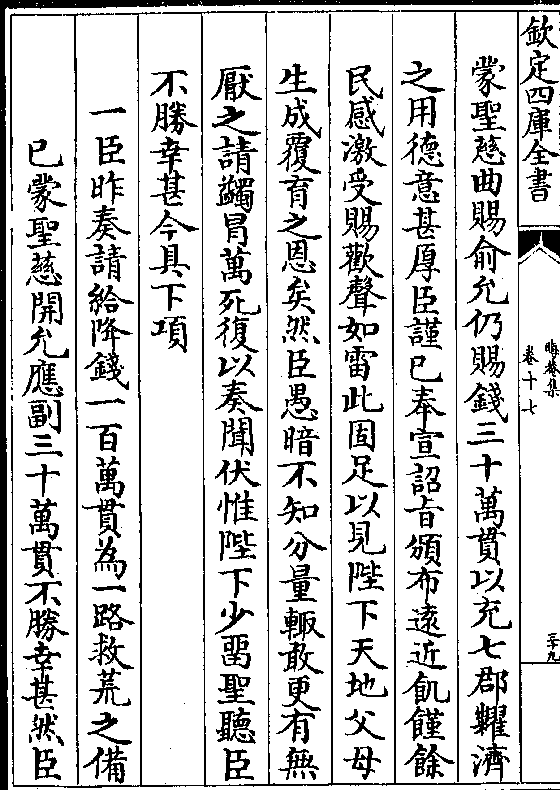 欽定四庫全書
晦菴集
卷十七
三十九
蒙聖慈曲賜俞允仍賜錢三十萬貫以充七郡糶濟
之用德意甚厚臣謹已奉宣詔旨頒布遠近飢饉餘
民感激受賜歡聲如雷此固足以見陛下天地父母
生成覆育之恩矣然臣愚暗不知分量輙敢更有無
厭之請蠲冒萬死復以奏聞伏惟陛下少留聖聽臣
不勝幸甚今具下項
一臣昨奏請給降錢一百萬貫為一路救荒之備
已蒙聖慈開允應副三十萬貫不勝幸甚然臣